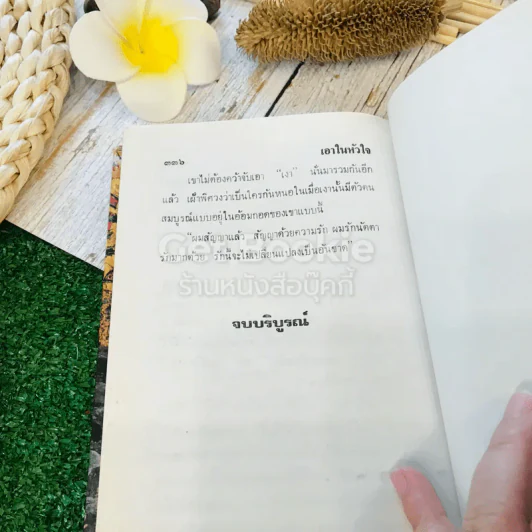 ๓๓๖
เงาในหัวใจ
เขาไม่ต้องคว้าจับเอา "เงา" นั้นมารวมกันอีก
แล้ว เฝ้าพิศวงว่าเป็นใครกันหนอในเมื่อเงานั้นมีตัวตน
สมบูรณ์แบบอยู่ในอ้อมกอดของเขาแบบนี้
"ผมสัญญาแล้ว สัญญาด้วยความรัก ผมรักนัดดา
รักมากด้วย รักนี้จะไม่เปลี่ยนแปลงเป็นอันขาด"
Get Bookie
ร้านหนังสือบุ๊คกี้
จบบริบูรณ์